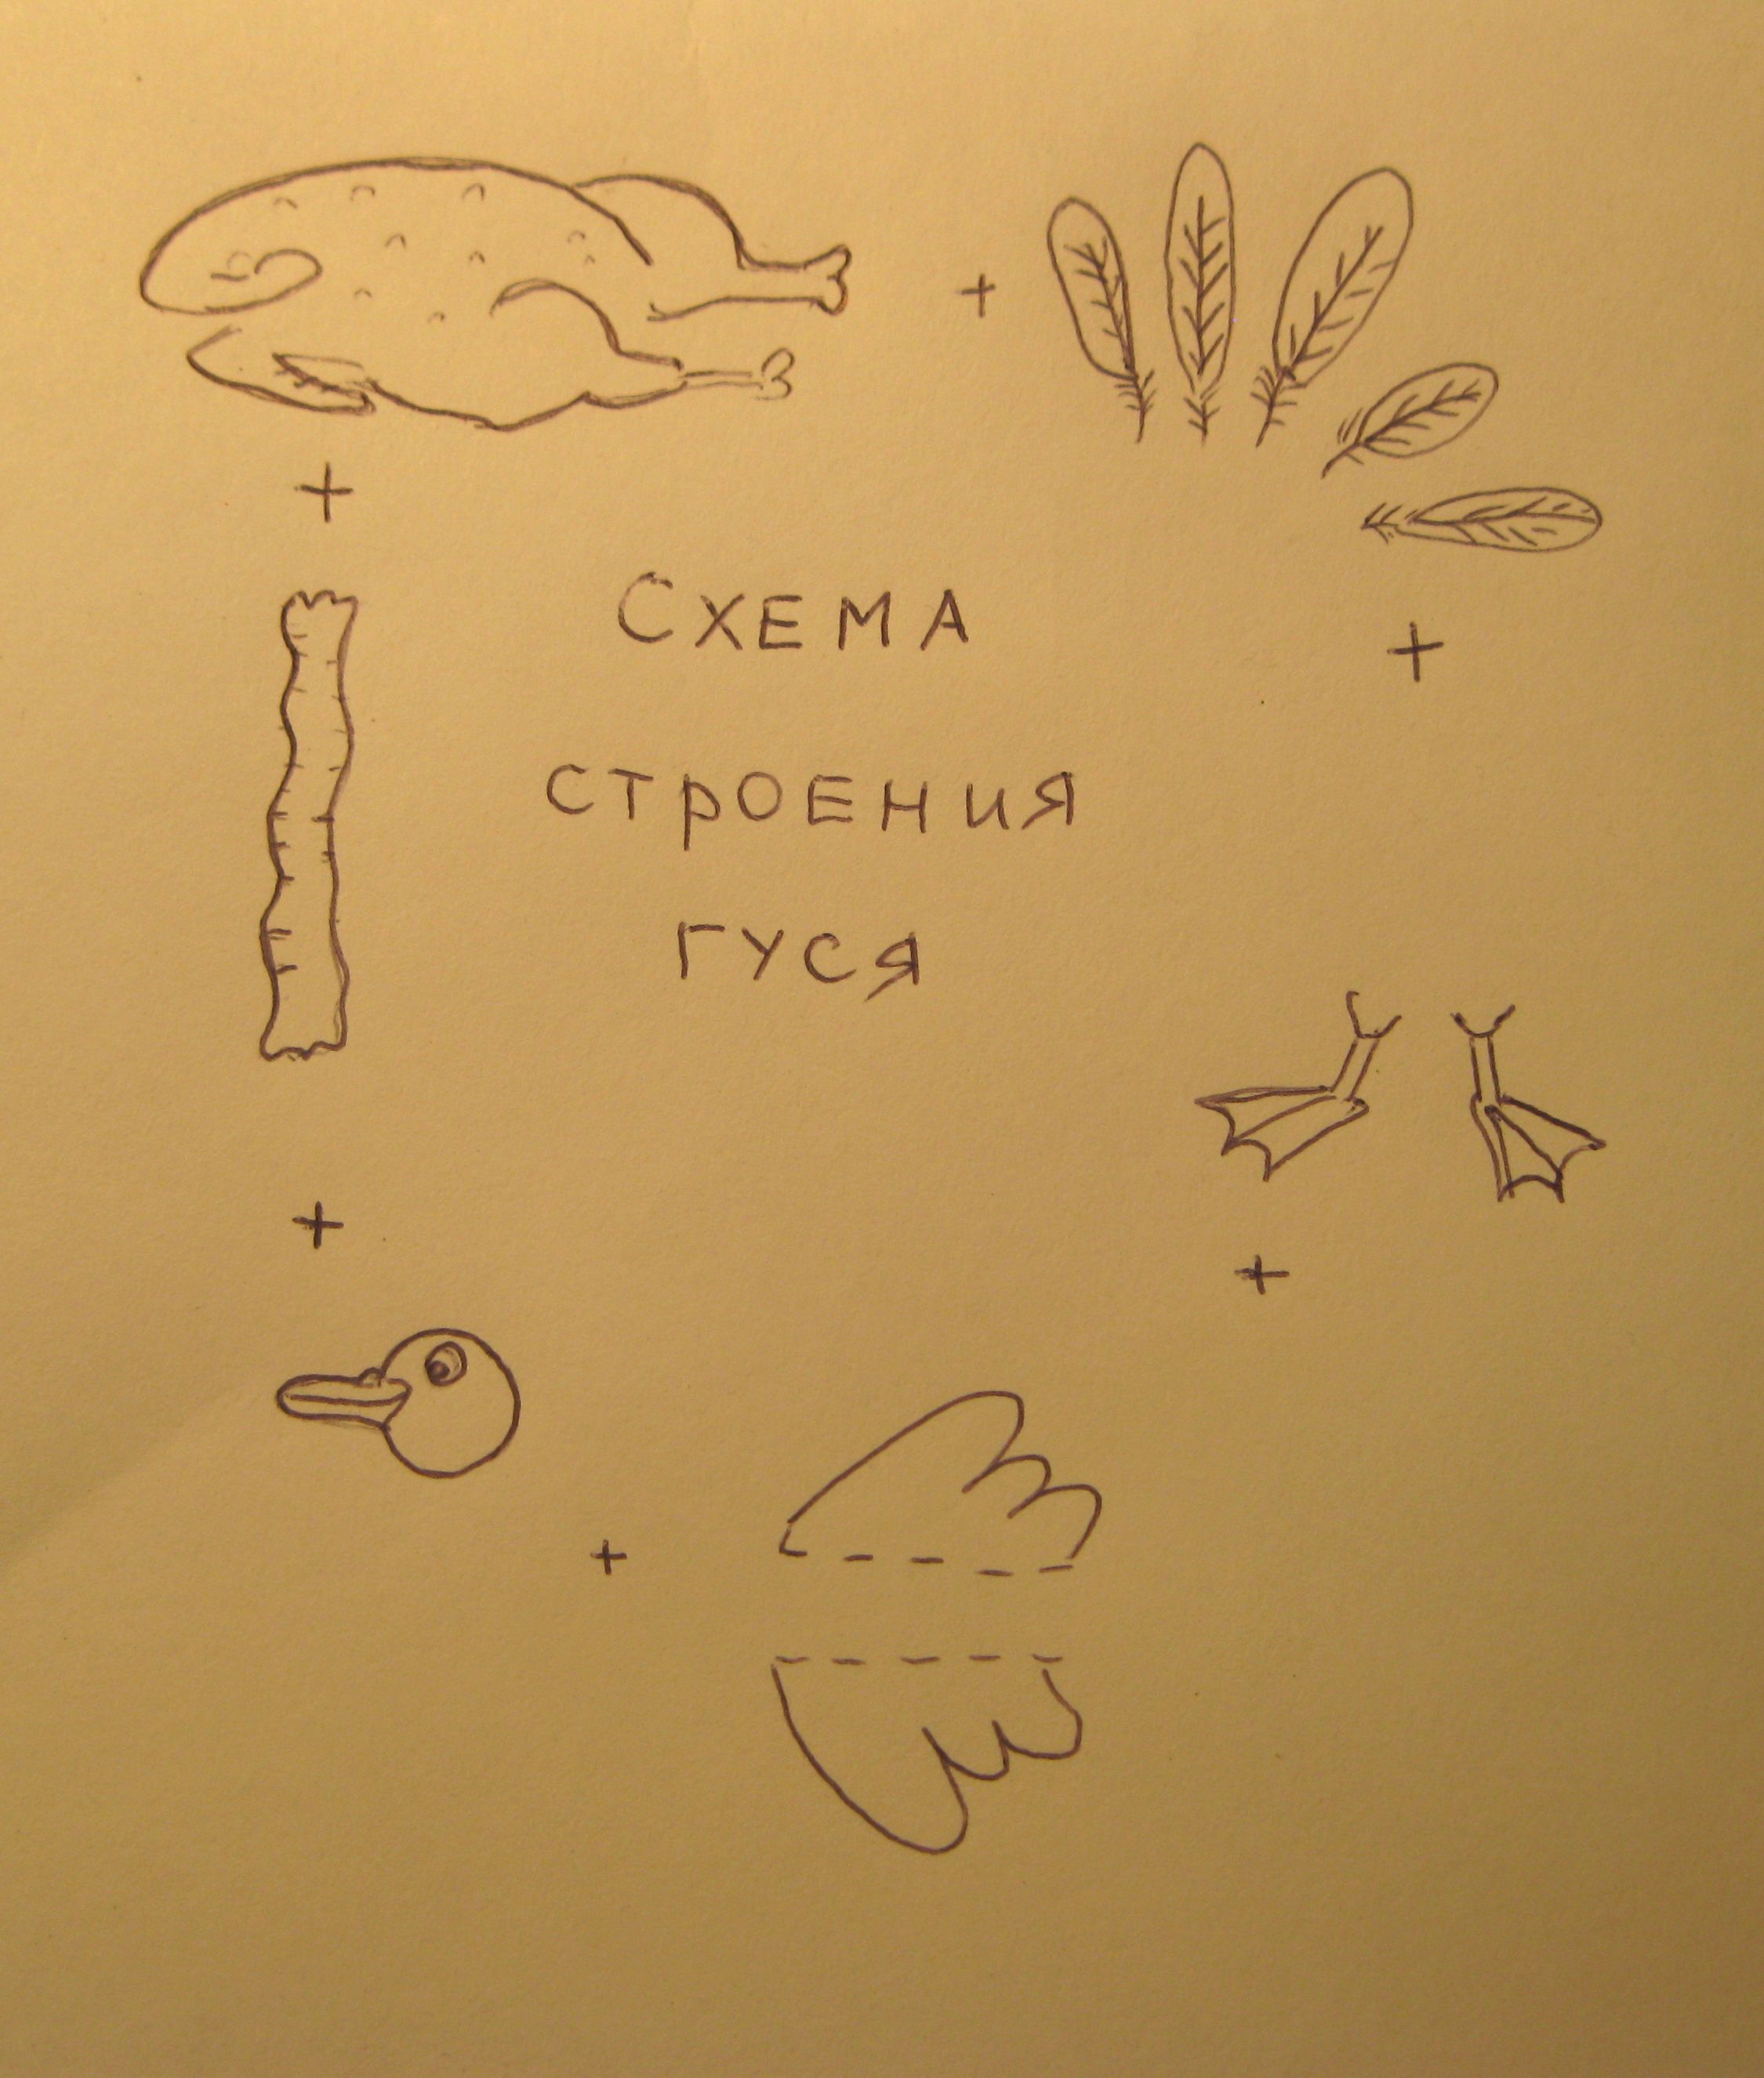 Схема
строения
гуся